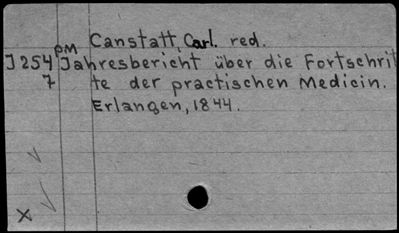 Canstatt, Carl. red.
PM
J254 Jahresbericht über die Fortschrit
7 te der practischen Medicin.
Erlangen, 1844.
X